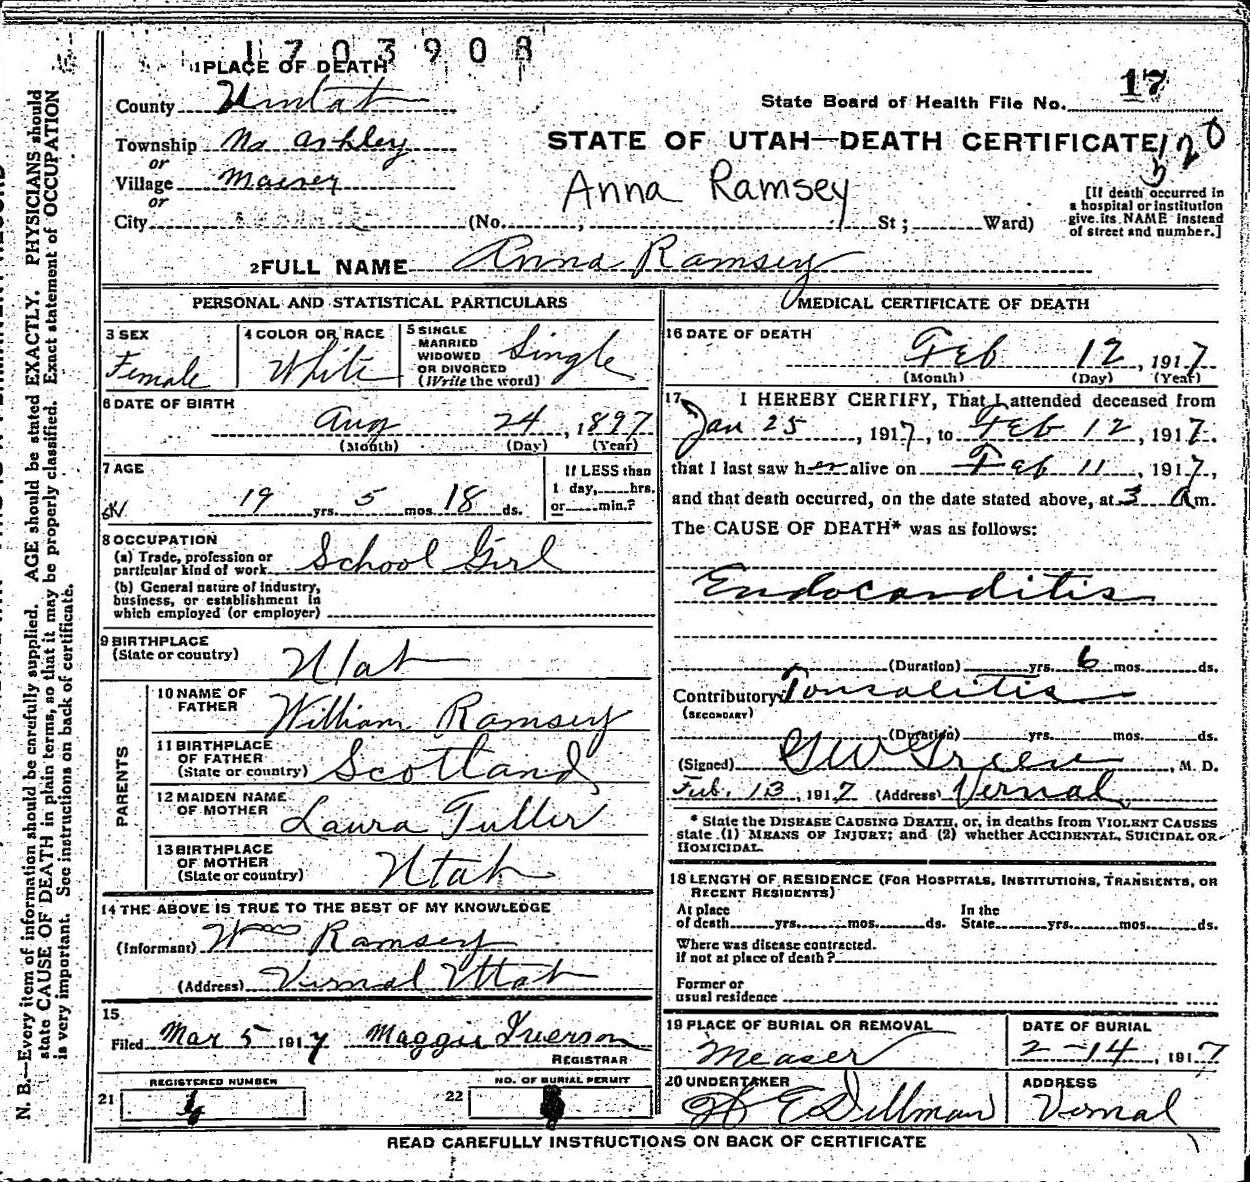 1703908
1 PLACE OF DEATH
County Uintah
State Board of Health File No. 17
Township No Ashley
or
STATE OF UTAH—DEATH CERTIFICATE
Village Maeser
or
Anna Ramsey
City (No. , St; Ward)
[If death occurred in
a hospital or institution
give its NAME instead
of street and number.]
2 FULL NAME Anna Ramsey
PERSONAL AND STATISTICAL PARTICULARS
3 SEX
Female
4 COLOR OR RACE
White
5 SINGLE
MARRIED
WIDOWED
OR DIVORCED
(Write the word)
Single
6 DATE OF BIRTH
Aug 24, 1897
(Month) (Day) (Year)
7 AGE
19 yrs. 5 mos. 18 ds.
If LESS than
1 day, hrs.
or min.?
8 OCCUPATION
(a) Trade, profession or
particular kind of work School Girl
(b) General nature of industry,
business, or establishment in
which employed (or employer)
9 BIRTHPLACE
(State or country) Utah
PARENTS
10 NAME OF
FATHER William Ramsey
11 BIRTHPLACE
OF FATHER
(State or country) Scotland
12 MAIDEN NAME
OF MOTHER Laura Fuller
13 BIRTHPLACE
OF MOTHER
(State or country) Utah
14 THE ABOVE IS TRUE TO THE BEST OF MY KNOWLEDGE
(Informant) Wm Ramsey
(Address) Vernal Utah
15
Filed Mar 5 1917 Maggie Iverson
REGISTRAR
REGISTERED NUMBER
21
NO. OF BURIAL PERMIT
22
MEDICAL CERTIFICATE OF DEATH
16 DATE OF DEATH
Feb 12, 1917
(Month) (Day) (Year)
17 I HEREBY CERTIFY, That I attended deceased from
Jan 25, 1917, to Feb 12, 1917.
that I last saw her alive on Feb 11, 1917,
and that death occurred, on the date stated above, at 3 a m.
The CAUSE OF DEATH* was as follows:
Endocarditis
(Duration) yrs. 6 mos. ds.
Contributory Tonsalitis
(SECONDARY)
(Duration) yrs. mos. ds.
(Signed) GW Green, M. D.
Feb. 13, 1917 (Address) Vernal
* State the DISEASE CAUSING DEATH, or, in deaths from VIOLENT CAUSES
state (1) MEANS OF INJURY; and (2) whether ACCIDENTAL, SUICIDAL OR
HOMICIDAL.
18 LENGTH OF RESIDENCE (FOR HOSPITALS, INSTITUTIONS, TRANSIENTS, OR
RECENT RESIDENTS)
At place
of death yrs. mos. ds.
In the
State yrs. mos. ds.
Where was disease contracted.
if not at place of death?
Former or
usual residence
19 PLACE OF BURIAL OR REMOVAL
Measer
DATE OF BURIAL
2-14, 1917
20 UNDERTAKER
E Dillman
ADDRESS
Vernal
READ CAREFULLY INSTRUCTIONS ON BACK OF CERTIFICATE
N. B.—Every item of information should be carefully supplied. AGE should be stated EXACTLY. PHYSICIANS should
state CAUSE OF DEATH in plain terms, so that it may be properly classified. Exact statement of OCCUPATION
is very important. See instructions on back of certificate.